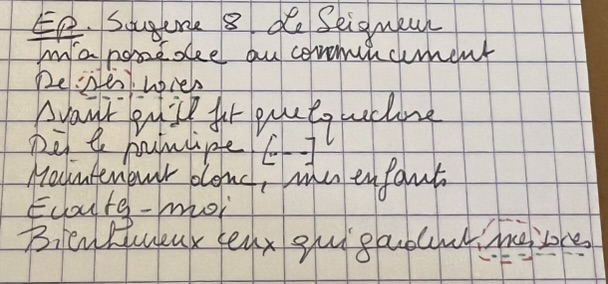 Ep. Sagesse 8. Le Seigneur
m'a possédée au commencement
De ses voies
Avant qu'il fit quelquechose
Dès le principe [...]
Maintenant donc, mes enfants
Ecoutez-moi
Bienheureux ceux qui gardent mes voies